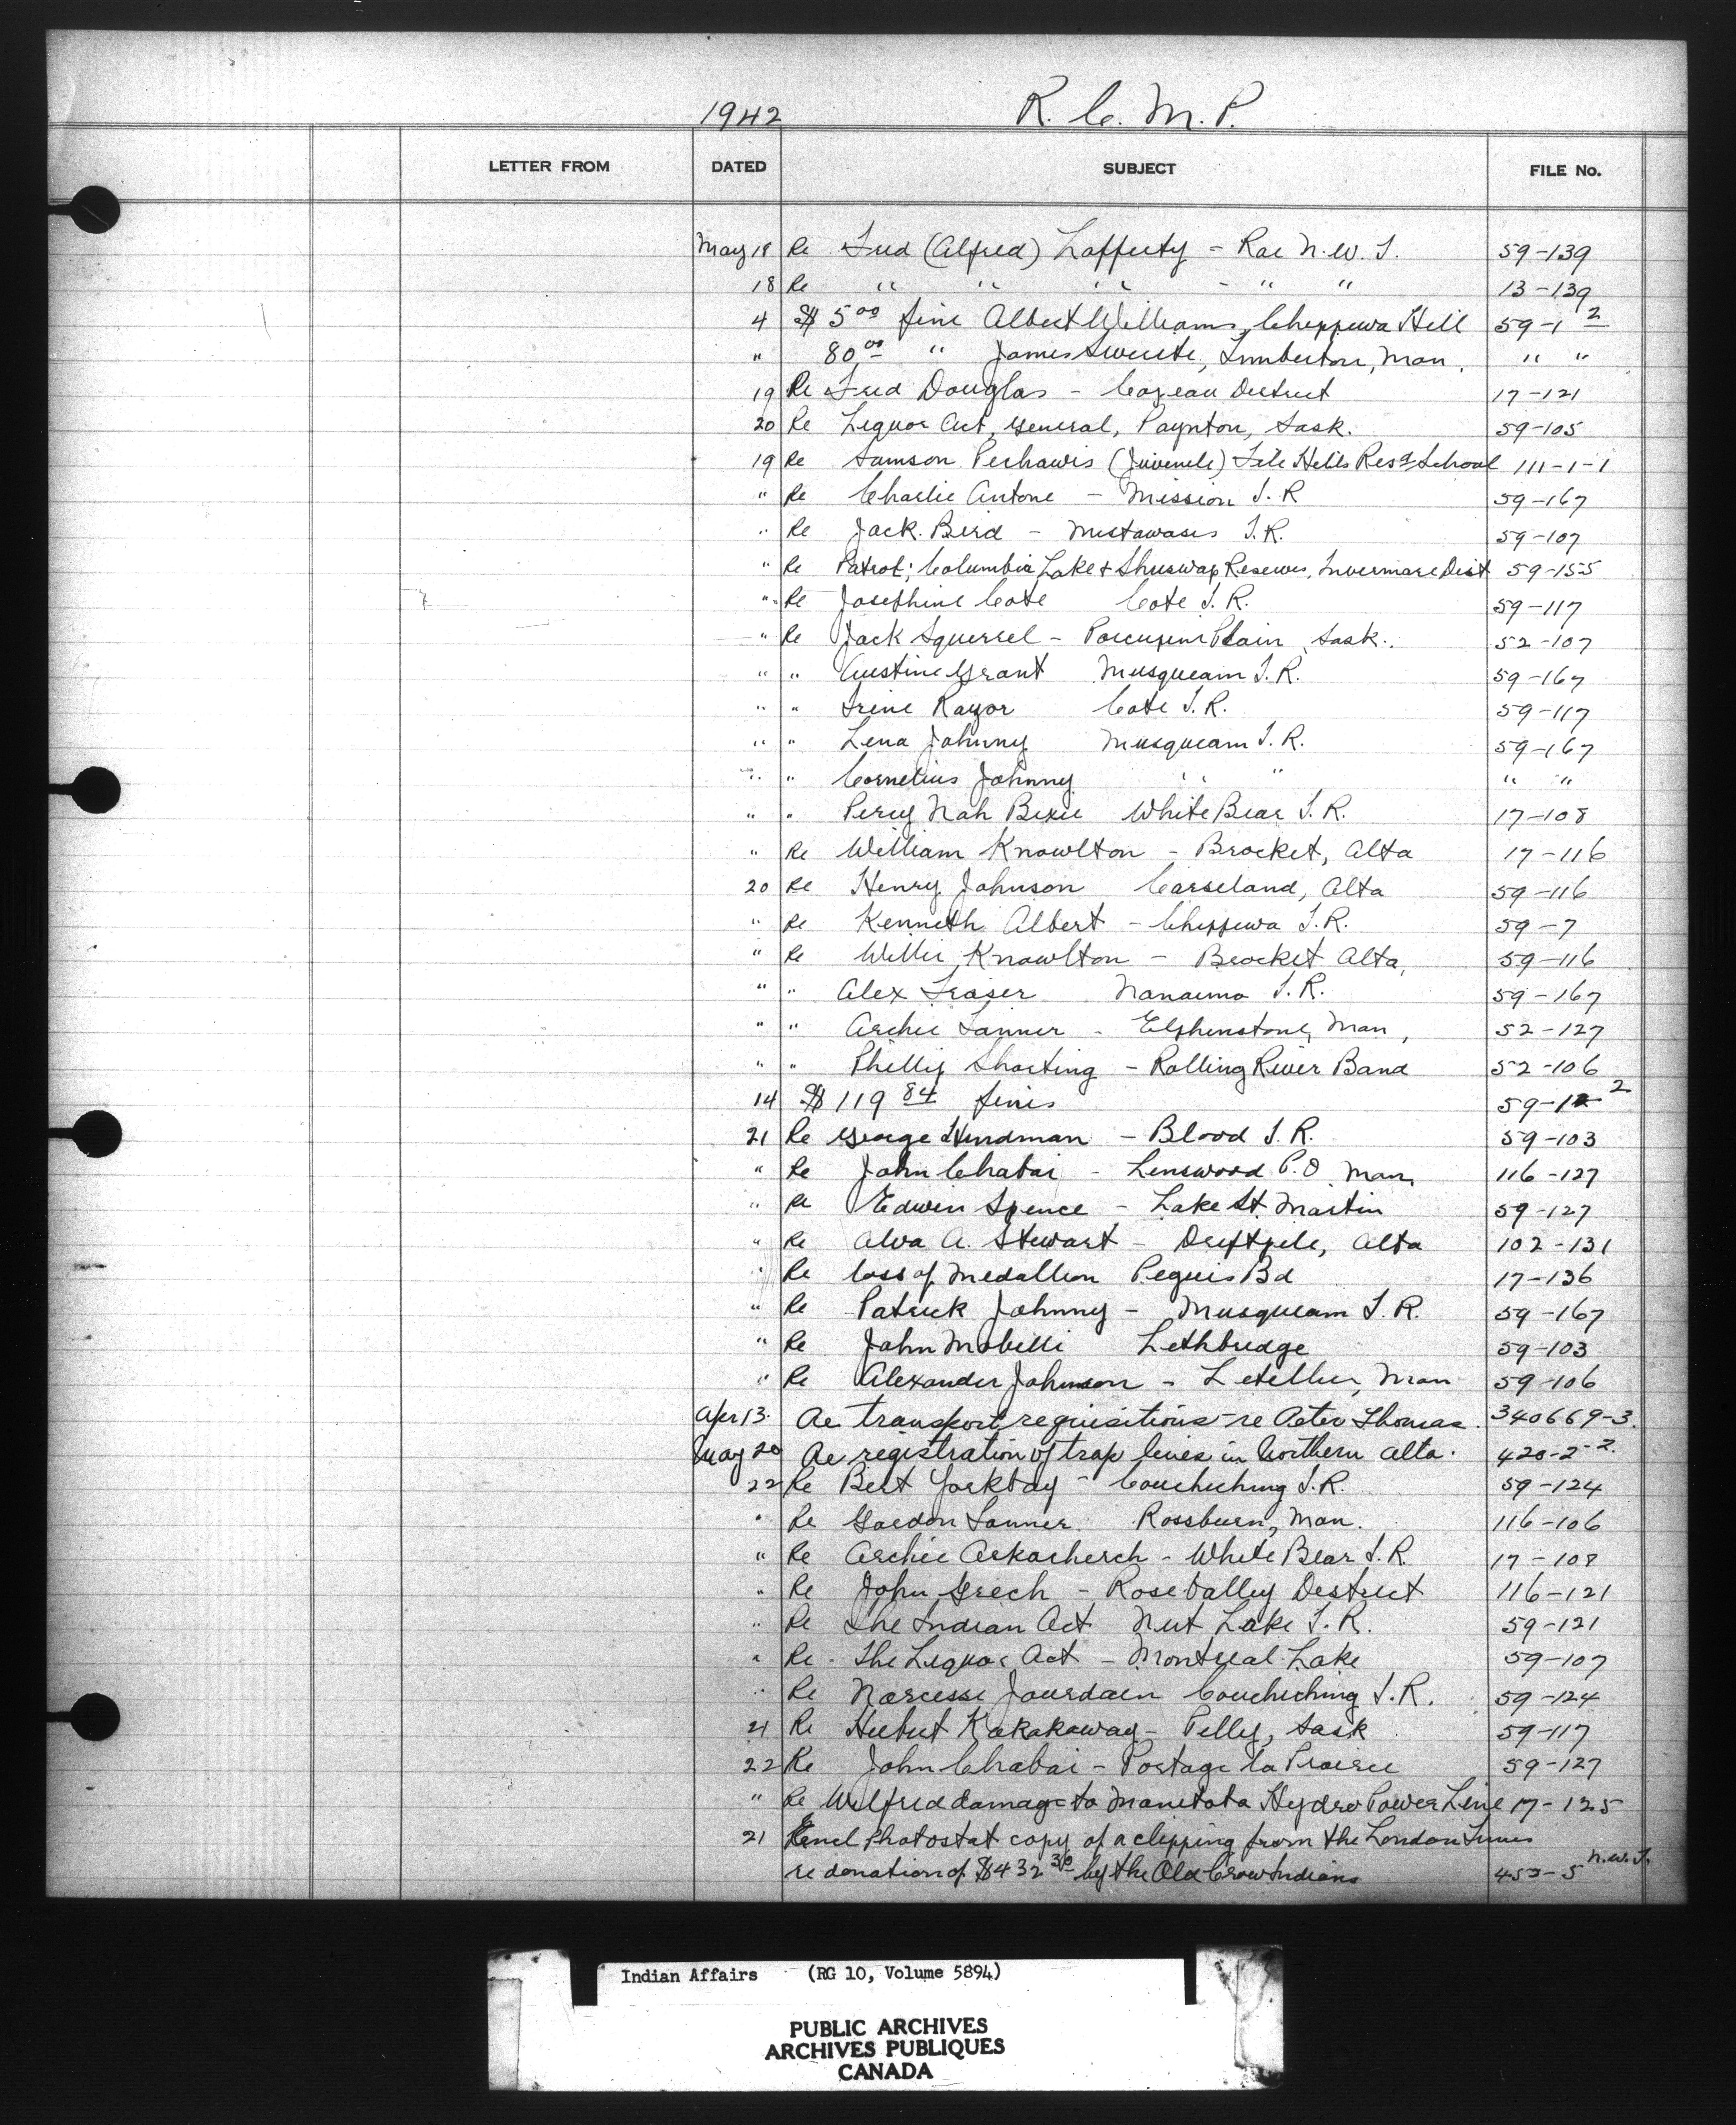 1942 R. C. M. P.
LETTER FROM DATED SUBJECT FILE No.
May 18 Re Fred (Alfred) Lafferty - Rae N.W.T. 59-139
18 Re " " " - " " 13-139
4 $ 5.00 fine Albert Williams, Chippewa Hill 59-1 2
" 80.00 " James Swerte, Lumberton, Man. " "
19 Re Fred Douglas - Cozeau District 17-121
20 Re Liquor Act, General, Paynton, Sask. 59-105
19 Re Samson Pechawis (Juvenile) File Hills Resd School 111-1-1
" Re Charlie Antone - Mission I.R. 59-167
" Re Jack Bird - Mistawasis I.R. 59-107
" Re Patrol; Columbia Lake & Shuswap Reserves, Invermere Dist 59-155
" Re Josephine Cote Cote I.R. 59-117
" Re Jack Squirrel - Porcupine Plain, Sask. 52-107
" " Austine Grant Musqueam I.R. 59-167
" " Irene Razor Cote I.R. 59-117
" " Lena Johnny Musqueam I.R. 59-167
" " Cornelius Johnny " " " "
" " Percy Nah Bexie White Bear I.R. 17-108
" Re William Knowlton - Brocket, Alta 17-116
20 Re Henry Johnson Carseland, Alta 59-116
" Re Kenneth Albert - Chippewa I.R. 59-7
" Re Willie Knowlton - Brocket Alta, 59-116
" " Alex Fraser Nanaimo I.R. 59-167
" " Archie Tanner - Elphinstone, Man, 52-127
" " Phillip Shorting - Rolling River Band 52-106
14 $119 84 fines 59-1 2
21 Re George Hindman - Blood I.R. 59-103
" Re John Chabai - Lenswood P.O. Man, 116-127
" Re Edwin Spence - Lake St. Martin 59-127
" Re Alva A. Stewart - Driftpile, Alta 102-131
" Re loss of Medallion Peguis Bd 17-136
" Re Patrick Johnny - Musqueam I.R. 59-167
" Re John Mobelli Lethbridge 59-103
" Re Alexander Johnson - Letellier, Man 59-106
Apr 13. Re transport requisitions - re Peter Thomas. 340669-3.
May 20 Re registration of trap lines in Northern Alta. 420-2-2.
22 Re Bert Yorkday - Couchiching I.R. 59-124
" Re Gordon Tanner. Rossburn, Man. 116-106
" Re Archie Askacherch - White Bear I.R. 17-108
" Re John Grech - Rose Valley District 116-121
" Re The Indian Act Nut Lake I.R. 59-121
" Re. The Liquor Act - Montreal Lake 59-107
" Re Narcesse Jourdain Couchiching I.R. 59-124
21 Re Hubert Kakakaway - Pelly, Sask 59-117
22 Re John Chabai - Portage la Prairie 59-127
" Re Wilfred damage to Manitoba Hydro Power Line 17-125
21 Encl Photostat copy of a clipping from the London Times
re donation of $432 30 by the Old Crow Indians 453-5 N.W.T.
Indian Affairs (RG 10, Volume 5894)
PUBLIC ARCHIVES
ARCHIVES PUBLIQUES
CANADA